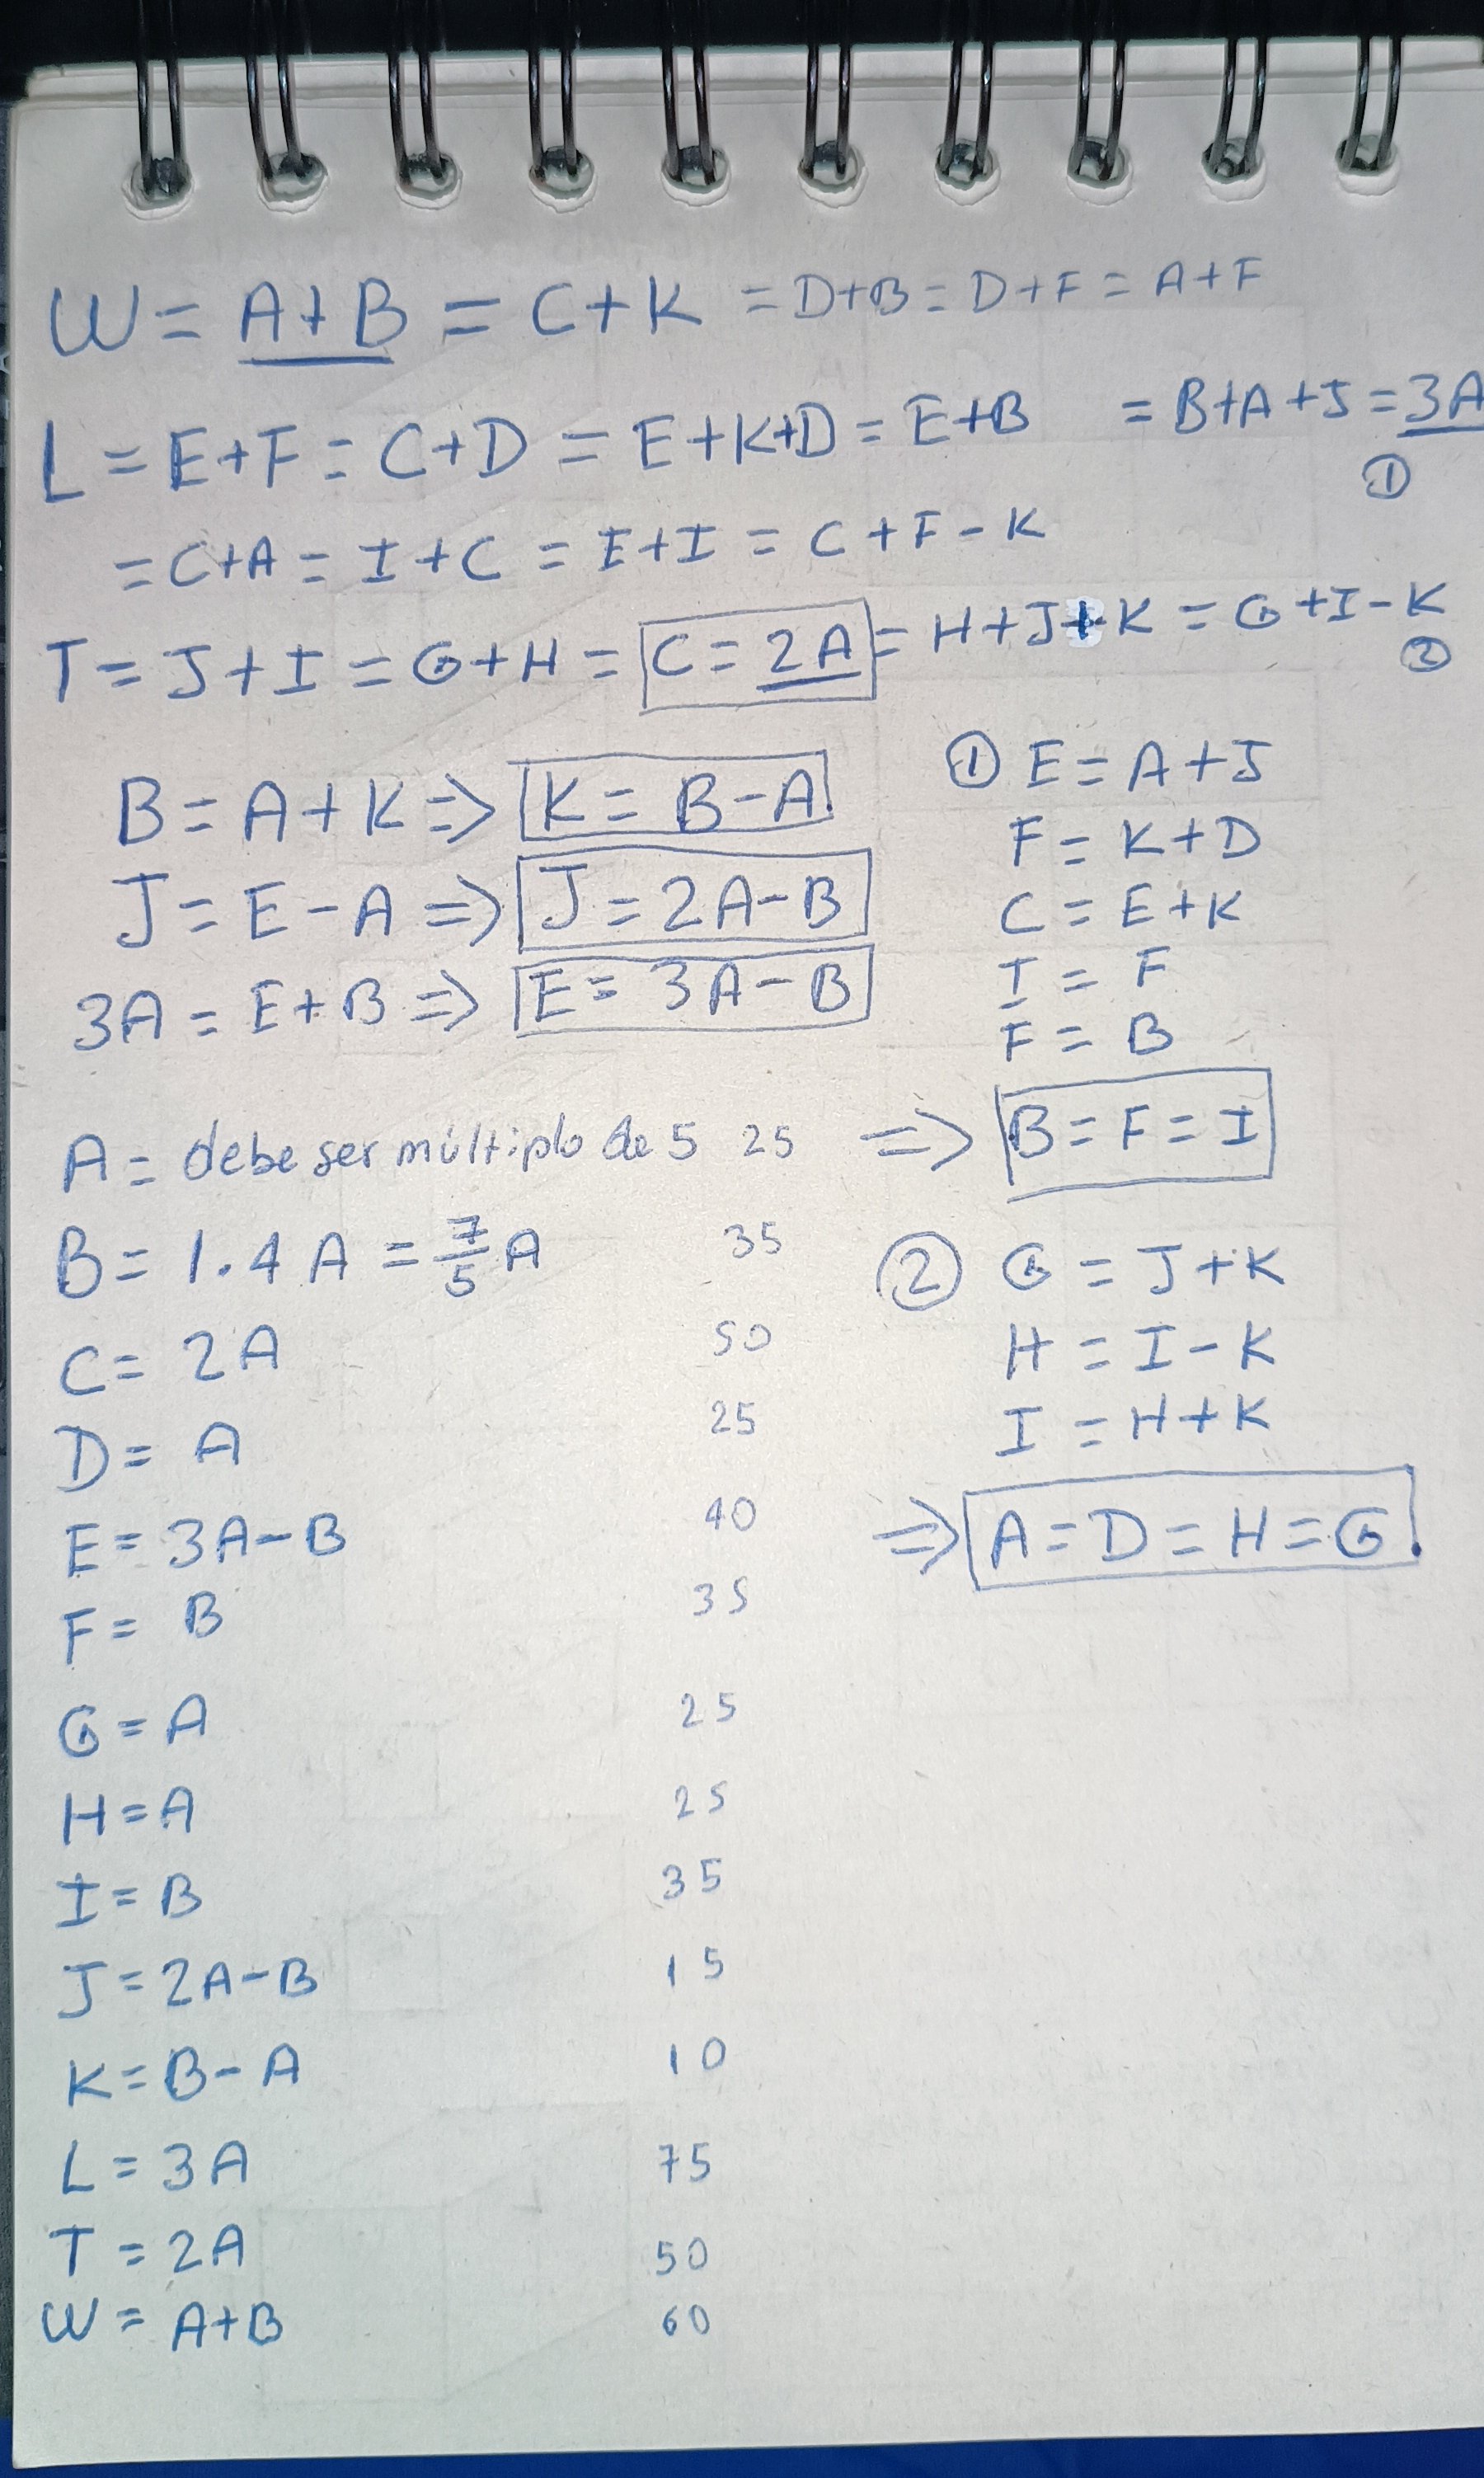 W = A+B = C+K = D+B = D+F = A+F
L = E+F = C+D = E+K+D = E+B = B+A+J = 3A
①
= C+A = I+C = E+I = C+F-K
T = J+I = G+H = C = 2A = H+J+K = G+I-K
②
B = A+K => K = B-A
J = E-A => J = 2A-B
3A = E+B => E = 3A-B
① E = A+J
F = K+D
C = E+K
I = F
F = B
=> B = F = I
A = debe ser múltiplo de 5 25
B = 1.4 A = 7/5 A 35
C = 2A 50
D = A 25
E = 3A-B 40
F = B 35
G = A 25
H = A 25
I = B 35
J = 2A-B 15
K = B-A 10
L = 3A 75
T = 2A 50
W = A+B 60
② G = J+K
H = I-K
I = H+K
=> A = D = H = G